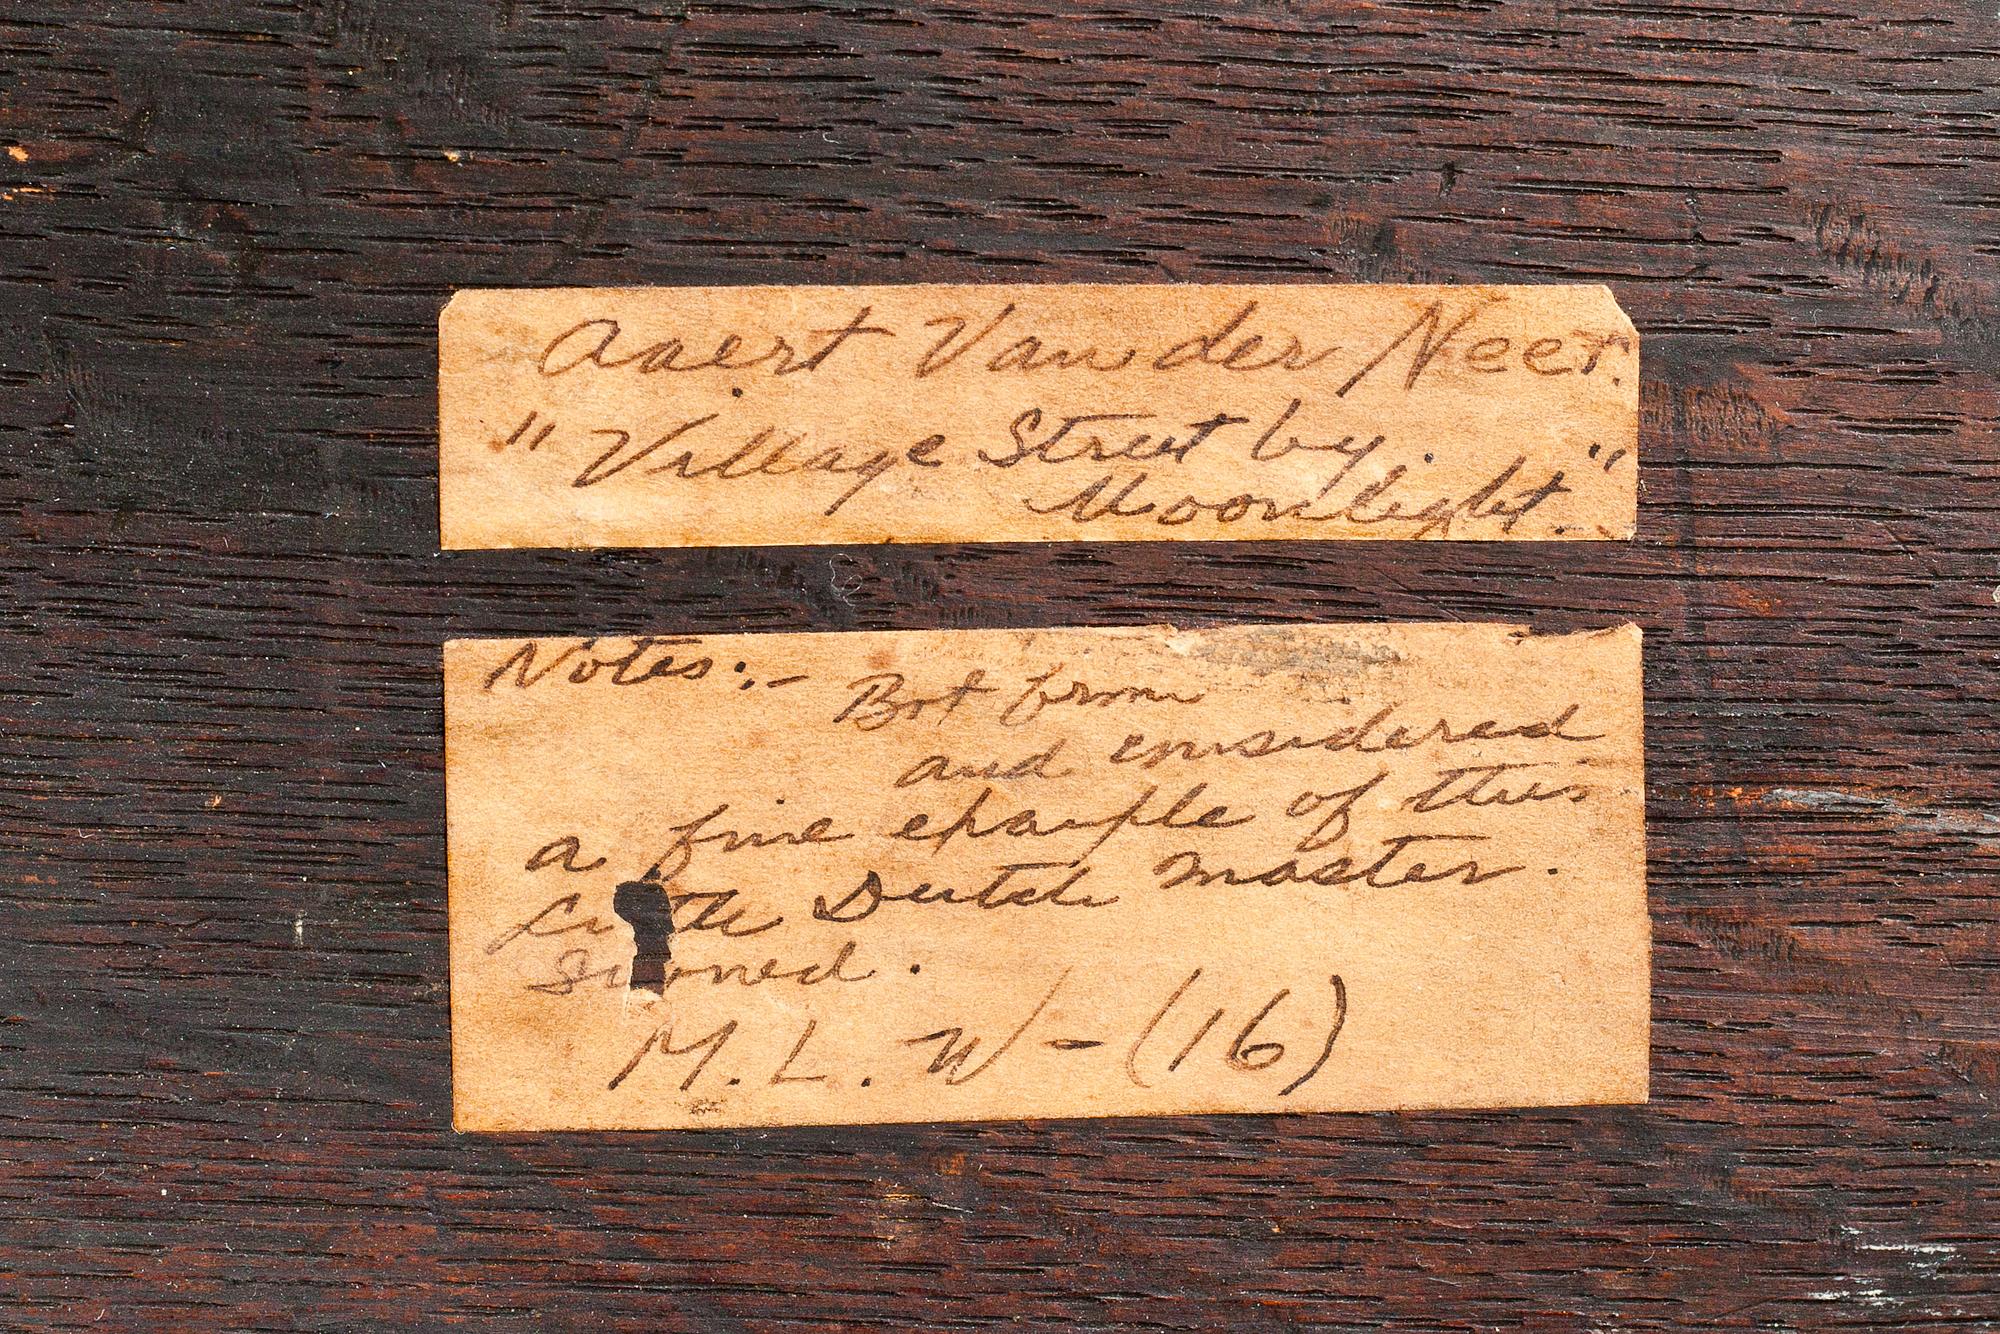 Aaert Van der Neer.
"Village Street by
Moonlight."
Notes:- Bot from
and considered
a fine example of this
Little Dutch master.
Signed.
M. L. W - (16)